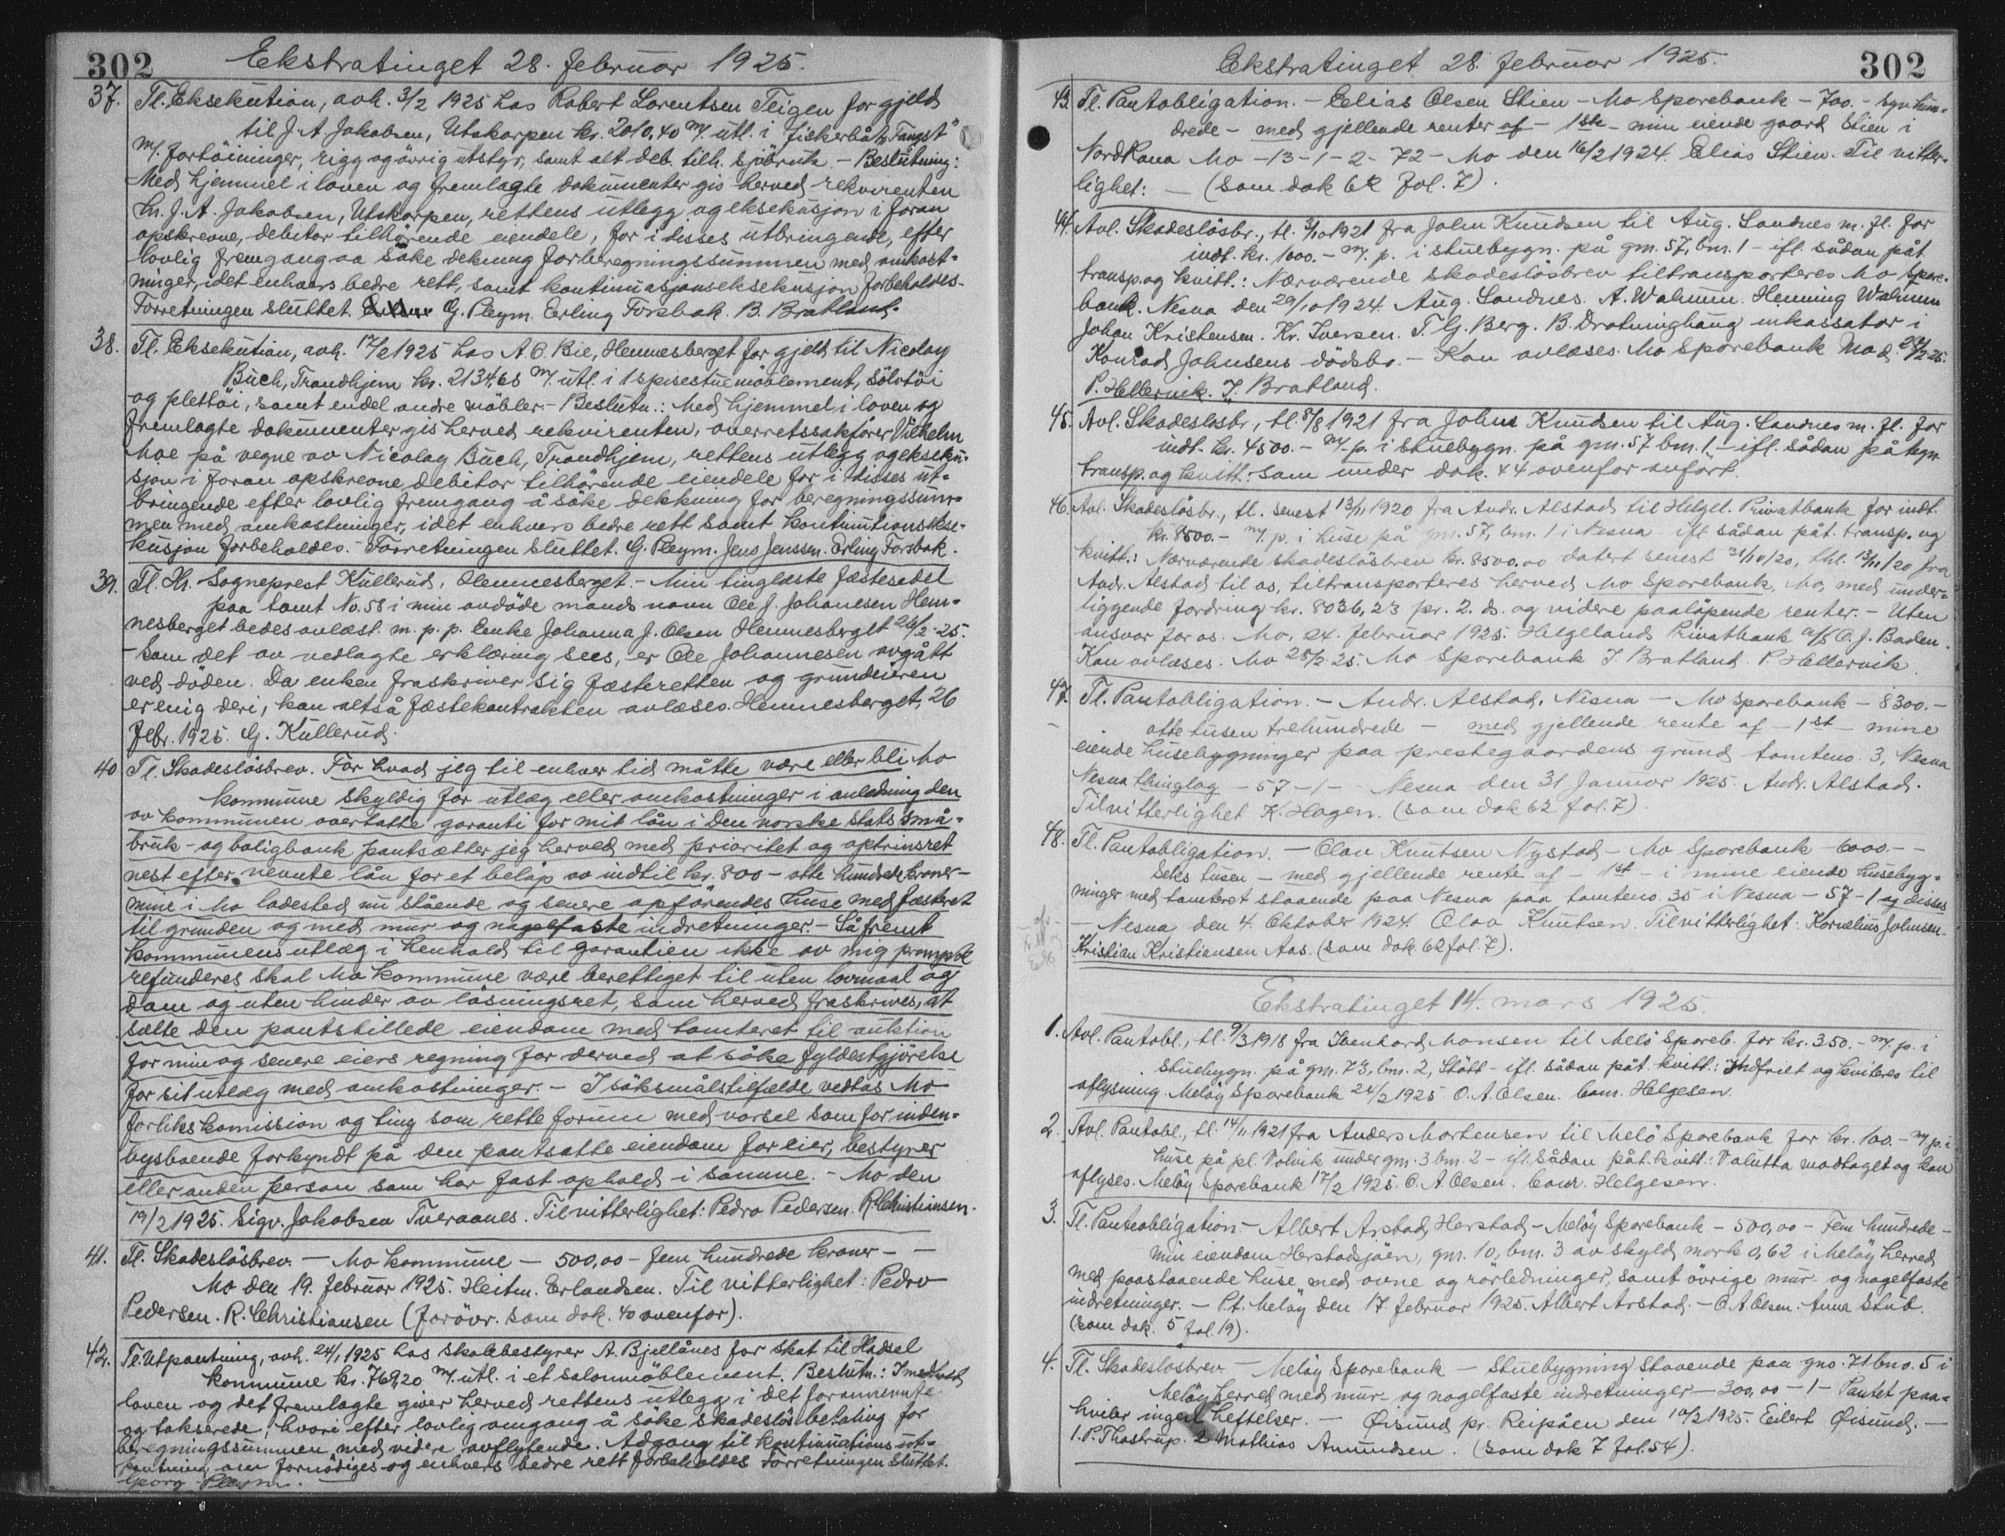 302
Ekstratinget 28. februar 1925.
37. Tl. Eksekution, avh. 3/2 1925 hos Robert Lorentsen Teigen for gjeld
til J. A. Jakobsen, Utskarpen kr. 2010.40 m/ utl. i fiskerbåt "Fangst"
m/ fortöininger, rigg og övrig utstyr, samt alt deb. tilh. sjöbruk. - Beslutning:
Med hjemmel i loven og fremlagte dokumenter gis herved rekvirenten
hr. J. A. Jakobsen, Utskarpen, rettens utlegg og eksekusjon i foran
opskrevne, debitor tilhørende eiendele, for i disses utbringende, efter
lovlig fremgang aa søke dekning for beregningssummen med omkost-
ninger, idet enhvers bedre rett, samt kontinuasjonseksekusjon forbeholdes.
Forretningen sluttet. G. Pleym. Erling Forsbak. B. Bratland.
38. Tl. Eksekution, avh. 17/2 1925 hos A. C. Bie, Hemnesberget for gjeld til Nicolay
Buch, Trondhjem kr. 2134.65 m/ utl. i 1 spisestuemöblement, sölvtöi
og plettöi, samt endel andre möbler - Beslutn.: Med hjemmel i loven og
fremlagte dokumenter gis herved rekvirenten, overretssakfører Vilhelm
Moe på vegne av Nicolay Buch, Trondhjem, rettens utlegg og ekseku-
sjon i foran opskrevne debitor tilhörende eiendele for i disses ut-
bringende efter lovlig fremgang å söke dekkning for beregningssum-
men med omkostninger, idet enhvers bedre rett samt kontinutionsekse-
kusjon forbeholdes. - Forretningen sluttet. G. Pleym. Jens Jenssen. Erling Forsbak.
39. Tl. Hr. Sogneprest Kullerud, Hemnesberget. - Min tinglæste fæstesedel
paa tomt No. 58 i min avdöde mands navn Ole J. Johanesen Hem-
nesberget bedes avlæst. m. p. p. Enke Johanna J. Olsen Hemnesberget 26/2-25.
- Som det av vedlagte erklæring sees, er Ole Johannesen avgått
ved döden. Da enken fraskriver sig fæsteretten og grundeieren
er enig deri, kan altså fæstekontrakten avlæses. Hemnesberget, 26
febr. 1925. G. Kullerud.
40 Tl. Skadeslösbrev. For hvad jeg til enhver tid måtte være eller bli Mo
kommune skyldig for utlæg eller omkostninger i anledning den
av kommunen overtatte garanti for mit lån i Den norske stats små-
bruk- og boligbank pantsætter jeg herved med prioritet og optrinsret
nest efter nevnte lån for et beløp av indtil kr. 800 - otte hundrede kroner -
mine i Mo ladested nu stående og senere opförendes huse med fæsteret
til grunden og med mur og nagelfaste indretninger. - Såfremt
kommunens utlæg i henhold til garantien ikke av mig prompte
refunderes skal Mo kommune være berettiget til uten lovmaal og
dom og uten hinder av låsningsret, som herved fraskrives, at
sætte den pantstillede eiendom med tomteret til auktion
for min og senere eiers regning for derved at söke fyldestgjörelse
for sit utlæg med omkostninger. - I söksmålstilfælde vedtas Mo
forlikskomission og ting som rette forum med varsel som for inden-
bysboende forkyndt på den pantsatte eiendom for eier, bestyrer
eller anden person som har fast ophold i samme. - Mo den
19/2 1925. Sigv. Jakobsen Tveraanes. Til vitterlighet: Pedro Pedersen. R. Christiansen.
41. Tl. Skadeslösbrev - Mo kommune - 500,00 - fem hundrede kroner - -
Mo den 19. februar 1925. Heitm. Erlandsen. Til vitterlighet: Pedro
Pedersen. R. Christiansen (forövr. som dok. 40 ovenfor).
42. Tl. Utpantning, avh. 24/1 1925 hos skolebestyrer A. Bjellånes for skat til Hadsel
kommune kr. 769,20 m/ utl. i et salonmöblement. Beslutn.: I medhold
loven og det fremlagte giver herved rettens utlegg i det forannevnte
og takserede, hvori efter lovlig omgang å söke skadeslös betaling for
beregningssummen med videre avflytende. Adgang til kontinuations ut-
pantning om fornödiges og enhvers bedre rett forbeholdes. Forretningen sluttet.
Georg Pleym.
Ekstratinget 28. februar 1925.
302
43. Tl. Pantobligation. - Eelias Olsen Stien - Mo Sparebank - 700. - Syv hun-
drede - med gjellende renter af - 1ste - min eiende gaard Stien i
Nord Rana Mo - 13 - 1 - 2 - 72 - Mo den 16/2 1924. Elias Stien. Til vitter-
lighet: - (som dok 62 fol. 7).
44. Avl. Skadeslösbr., tl. 3/10 1921 fra John Knudsen til Aug. Sandnes m. fl. for
indt. kr. 1000. - m/ p. i stuebygn. på gm. 57, bm. 1 - ifl. sådan påt.
transp. og kvitt.: Nærværende skadeslösbrev tiltransporteres Mo Spare-
bank. Nesna den 29/10 1924. Aug. Sandnes. A. Walnum. Henning Walnum
Johan Kristensen. Kr. Iversen. T. G. Berg. B. Drotninghaug inkassator i
Konrad Johnsens dödsbo. - Kan avlæses. Mo Sparebank Mo d. 28/2-25.
P. Hellervik. J. Bratland.
45. Avl. Skadeslosbr., tl. 8/8 1921 fra Johns Knudsen til Aug. Sandnes m. fl. for
indt. kr. 4500. - m/ p. i stuebygn. på gm. 57 bm. 1. - ifl. sådan påtegn.
transp. og kvitt.: som under dok. 44 ovenfor anfört.
46. Avl. Skadeslösbr., tl. senest 13/11 1920 fra Andr. Alstad til Helgel. Privatbank for indt.
kr. 8500. - m/ p. i huse på gm. 57, bm. 1 i Nesna - ifl. sådan påt. transp. og
kvitt.: Nærværende skadeslösbrev kr. 8500.00 datert senest 31/10/20, thl. 13/11/20 fra
Andr. Alstad til os, tiltransporteres herved Mo Sparebank, Mo, med under-
liggende fordring kr. 8036,23 pr. 2. ds. og videre paalöpende renter. - Uten
ansvar for os. Mo, 24. februar 1925. Helgelands Privatbank A/S O. J. Baden.
Kan avlæses. Mo 28/2-25. Mo Sparebank J. Bratland. P. Hellervik.
47. Tl. Pantobligation. - Andr. Alstad, Nesna - Mo Sparebank - 8300. -
otte tusen trehundrede - med gjellende rente af - 1st - mine
eiende husebygninger paa prestegaardens grund tomteno. 3, Nesna
Nesna thinglag - 57 - 1 - Nesna den 31 Januar 1925. Andr. Alstad.
Til vitterlighet K. Hagen. (som dok 62 fol. 7)
48. Tl. Pantobligation. - Olav Knutsen Nystad - Mo Sparebank - 6000. - -
Seks tusen - med gjellende rente af - 1st - i mine eiende husebyg-
ninger med tomteret staaende paa Nesna paa tomteno. 35 i Nesna - 57 - 1 og disses
- Nesna den 4. Oktober 1924. Olav Knutsen. Til vitterlighet: Kornelius Johnsen.
Kristian Kristiansen Aas. (som dok. 62 fol. 7).
Ekstratinget 14. mars 1925.
1. Avl. Pantobl., tl. 9/3 1918 fra Ibenhard Monsen til Melö Spareb. for kr. 350. - m/ p. i
stuebygn. på gm. 73, bm. 2, Stött - ifl. sådan påt. kvitt.: Indfriet og kviteres til
aflysning. Melöy Sparebank 24/2 1925 O. A. Olsen. Conr. Helgesen.
2. Avl. Pantobl., tl. 14/11 1921 fra Anders Mortensen til Melö Sparebank for kr. 100. - m/ p. i
huse på pl. Valvik under gm. 3 bm. 2 - ifl. sådan påt. kvitt.: Valutta modtaget og kan
aflyses. Melöy Sparebank 17/2 1925. O. A. Olsen. Conr. Helgesen.
3. Tl. Panteobligation - Albert Arstad, Herstad - Melöy Sparebank - 500,00 - Fem hundrede -
min eiendom Herstadsjöen, gm. 10, bm. 3 av skyld mark 0,62 i Melöy herred
med paastaaende huse med ovne og rörledninger, samt övrige mur- og nagelfaste
indretninger. - P.t. Melöy den 17. februar 1925. Albert Arstad. - O. A. Olsen. Anna Stub.
(som dok. 5 fol. 19).
4. Tl. Skadeslosbrev - Melöy Sparebank - Stuebygning staaende paa gno. 71 bno. 5 i
Melöy herred med mur- og nagelfaste indretninger - 300,00 - 1 - Pantet paa-
hviler ingen heftelser. - Øisund pr. Reipåen den 10/2 1925. Eilert Øisund. -
1. P. Thostrup. 2 Mathias Amundsen. (som dok 7 fol. 54).